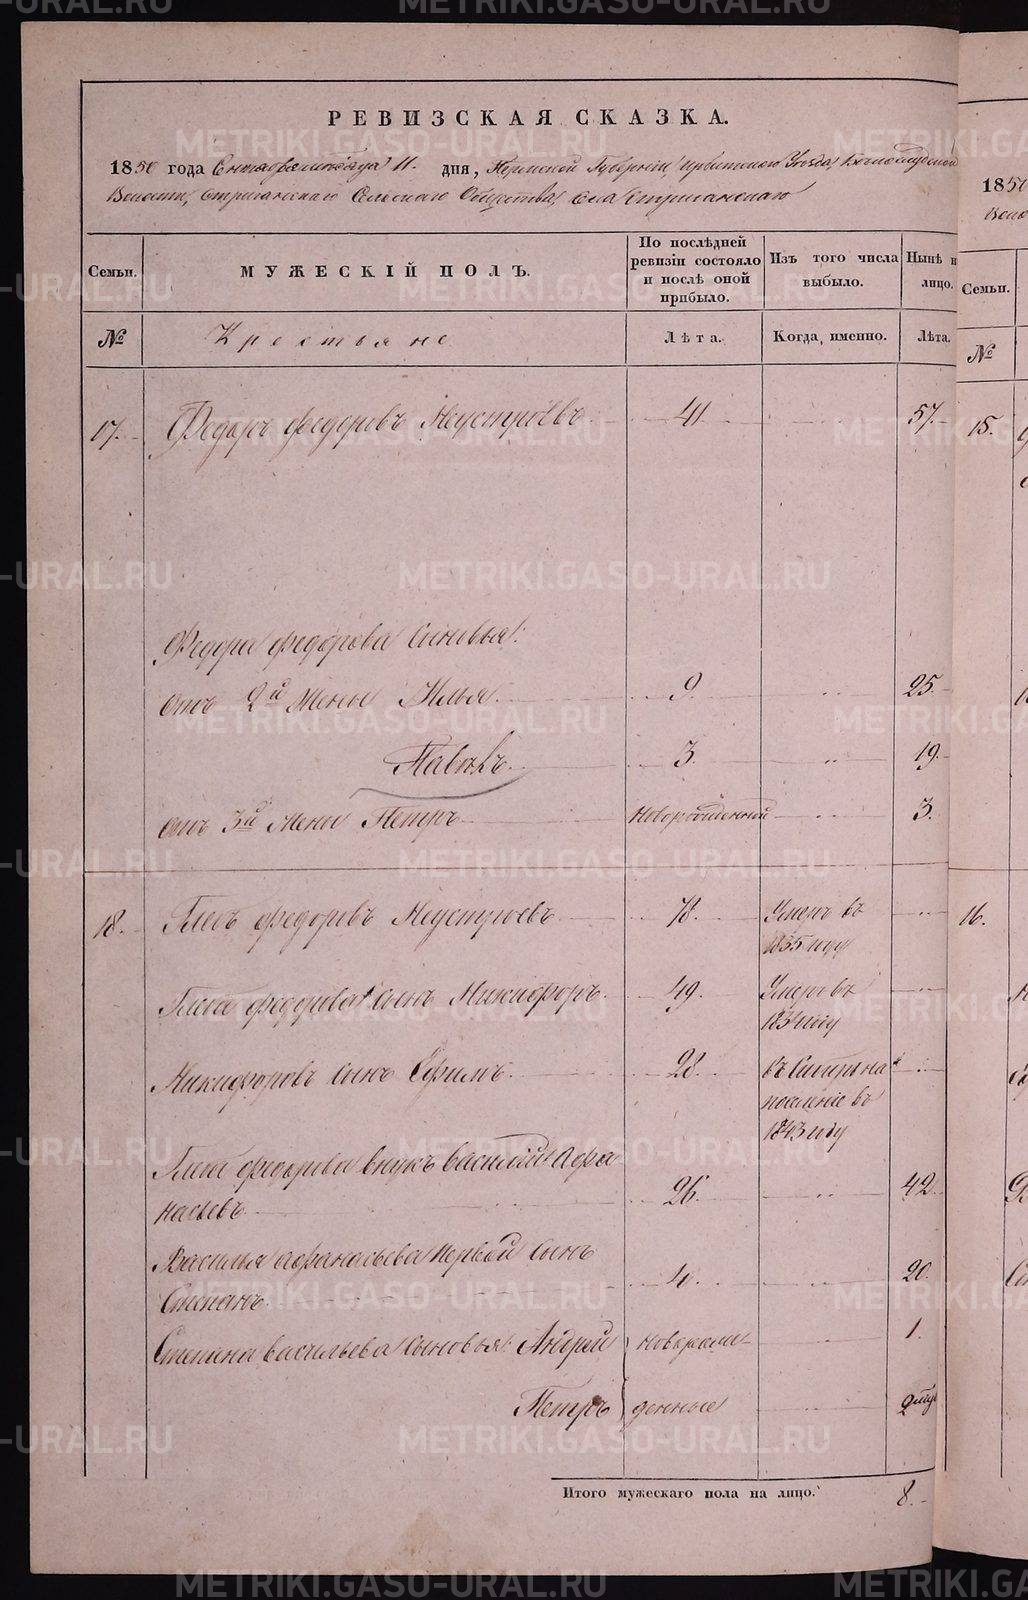 METRIKI.GASO-URAL.RU
РЕВИЗСКАЯ СКАЗКА.
1850 года Сентября месяца 11. дня, Пермской Губернiи, Ирбитскаго Уезда,
Волости, Стриганскаго Сельскаго Общества, села Стриганскаго
Семьи.
МУЖЕСКIЙ ПОЛЪ.
По послѣдней ревизiи состояло и послѣ оной прибыло.
Изъ того числа выбыло.
Нынѣ н лицо.
№
Крестьяне
Лѣта.
Когда, именно.
Лѣта.
17. Федоръ федоровъ Неустроевъ 41. 57.
Федора федорова сыновья:
отъ 2й Жены Илья. 9. 25.
Павелъ. 3. 19.
отъ 3й Жены Петръ новорожденный 3.
18. Глебъ федоровъ Неустроевъ 78. Умеръ въ
1835 году
Глеба федорова сынъ Никифоръ. 49. Умеръ въ
1834 году
Никифоровъ сынъ Ефимъ. 28. въ Сибирь на
поселенiе въ
1843 году
Глеба федорова внукъ василiй Афа
насьевъ 26. 42
Василья афанасьева первой сынъ
Степанъ. 4. 20.
Степана васильева сыновья: Андрей новорож 1.
Петръ денные
Итого мужескаго пола на лицо. 8.
1850
Воло
Семьи.
№
15.
16.